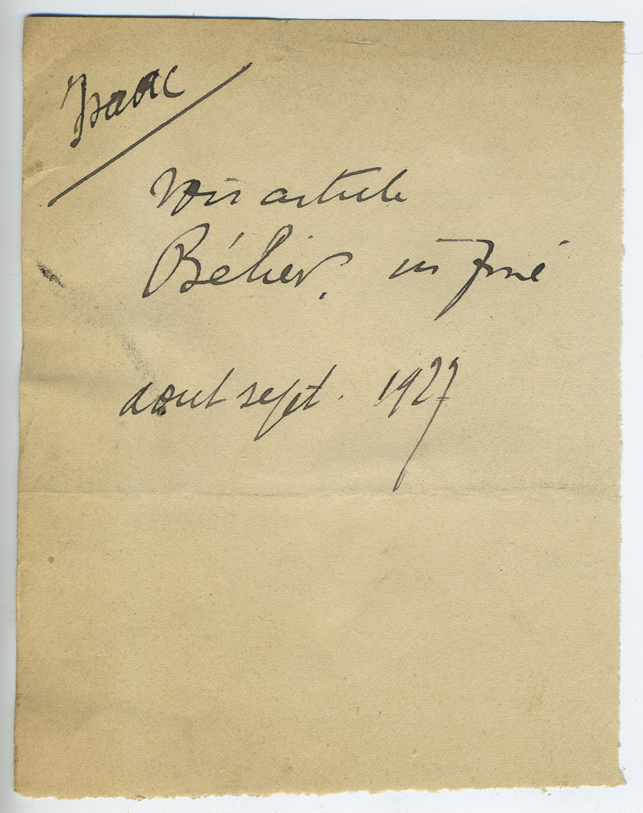 Isaac
Voir article
Bélier. in
aout sept. 1927